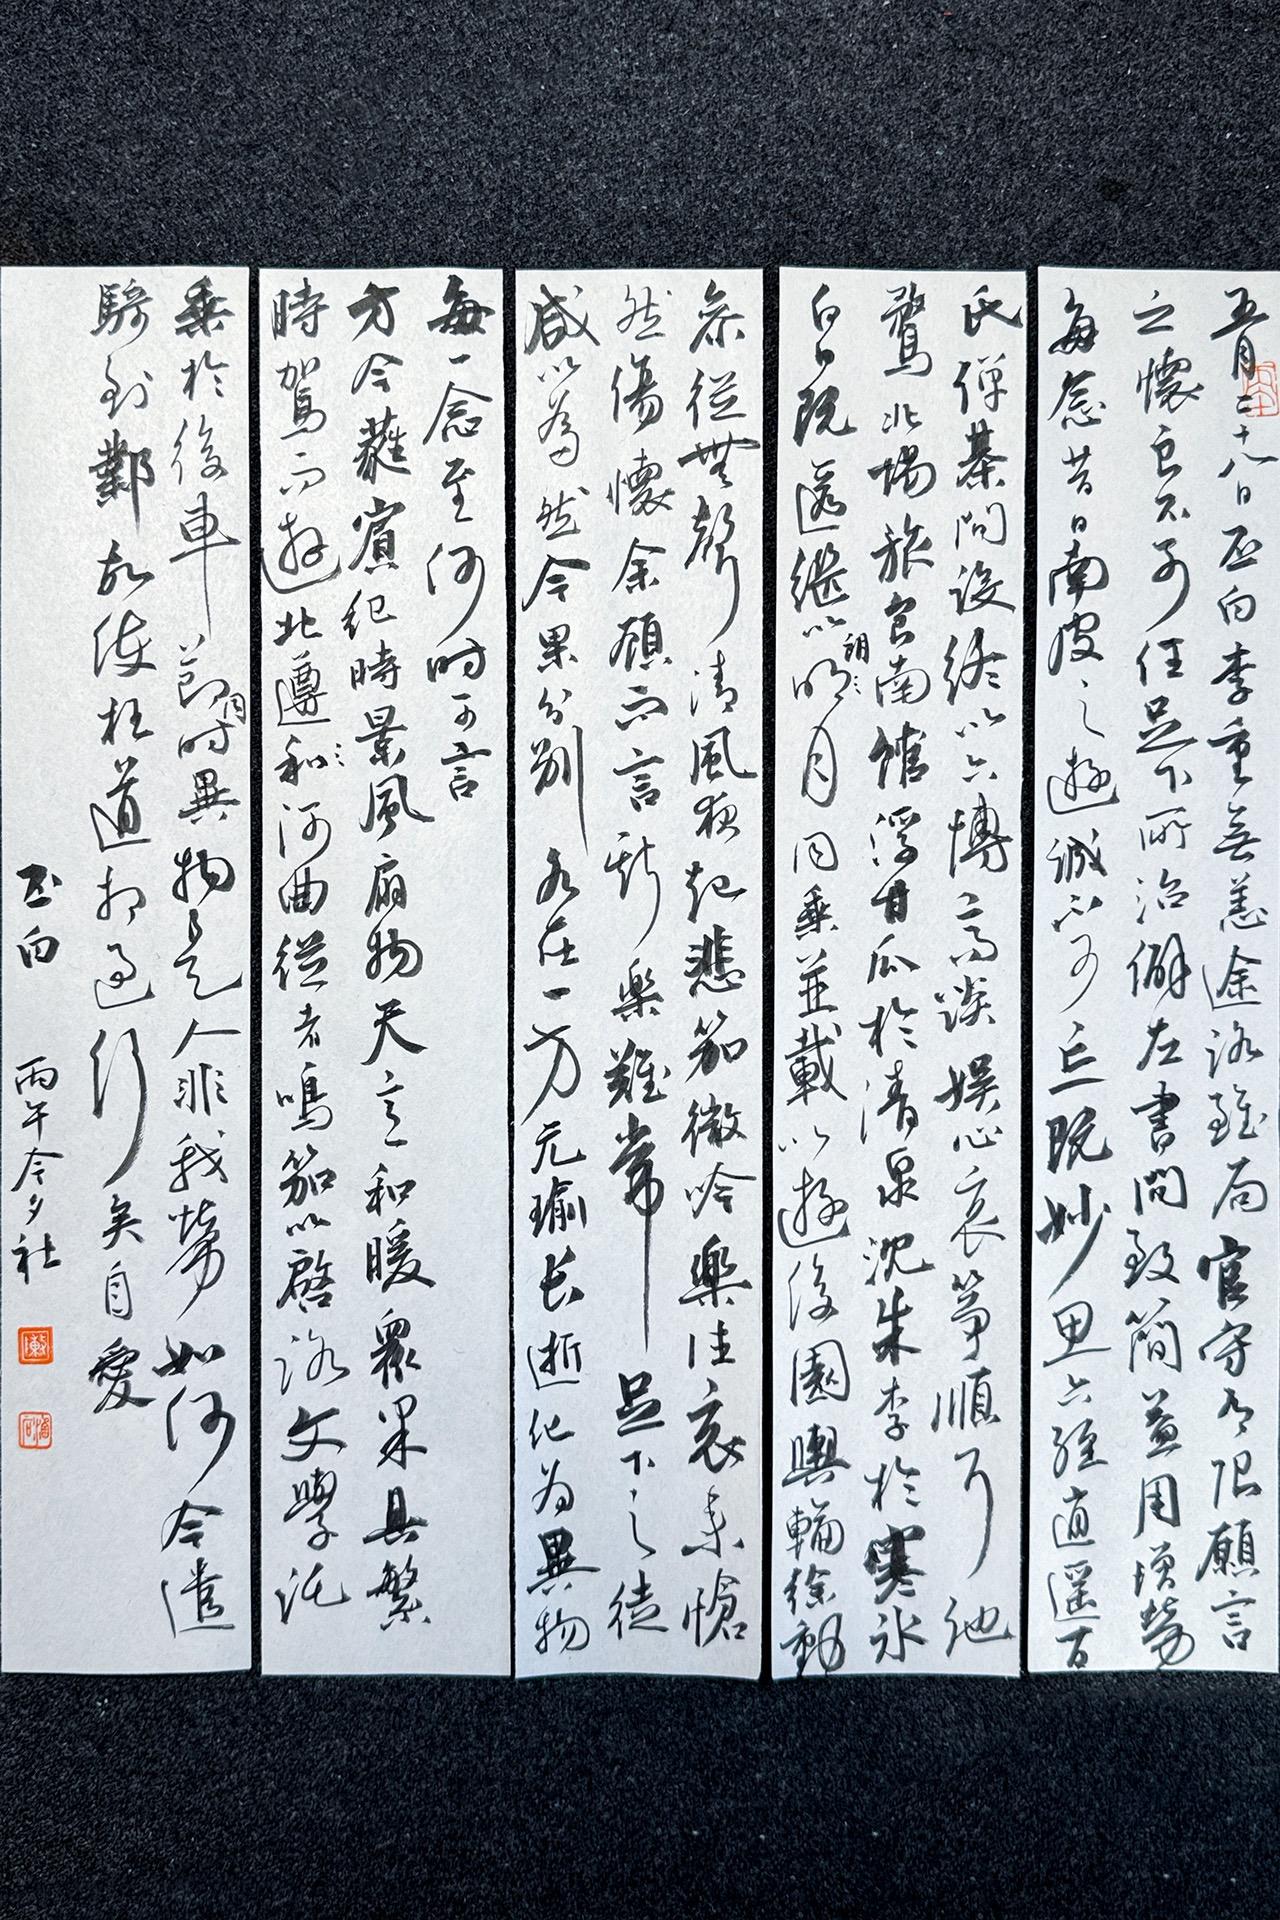 五月二十八日丕白季重無恙途路雖局官守有限願言
之懷良不可任足下所治僻左書問致簡益用增勞
每念昔日南皮之遊誠不可忘既妙思六經逍遥百
氏彈棊問設終以六博高談娛心哀箏順耳弛
騖北場旅食南館浮甘瓜於清泉沈朱李於寒水
白日既匿繼以明月同乘並載以遊後園輿輪徐動
朗
參從無聲清風夜起悲笳微吟樂往哀来愴
然傷懷余顧而言斯樂難常足下之徒
咸以為然今果分別各在一方元瑜長逝化为異物
每一念至何时可言
方今蕤賓纪時景風扇物天氣和暖衆果具繁
時駕而遊北遵和河曲從者鳴笳以啓路文學託
乘於後車節时異物是人非我勞如何今遣
同
騎到鄴故使枉道相過行矣自愛
丕白 丙午今夕社